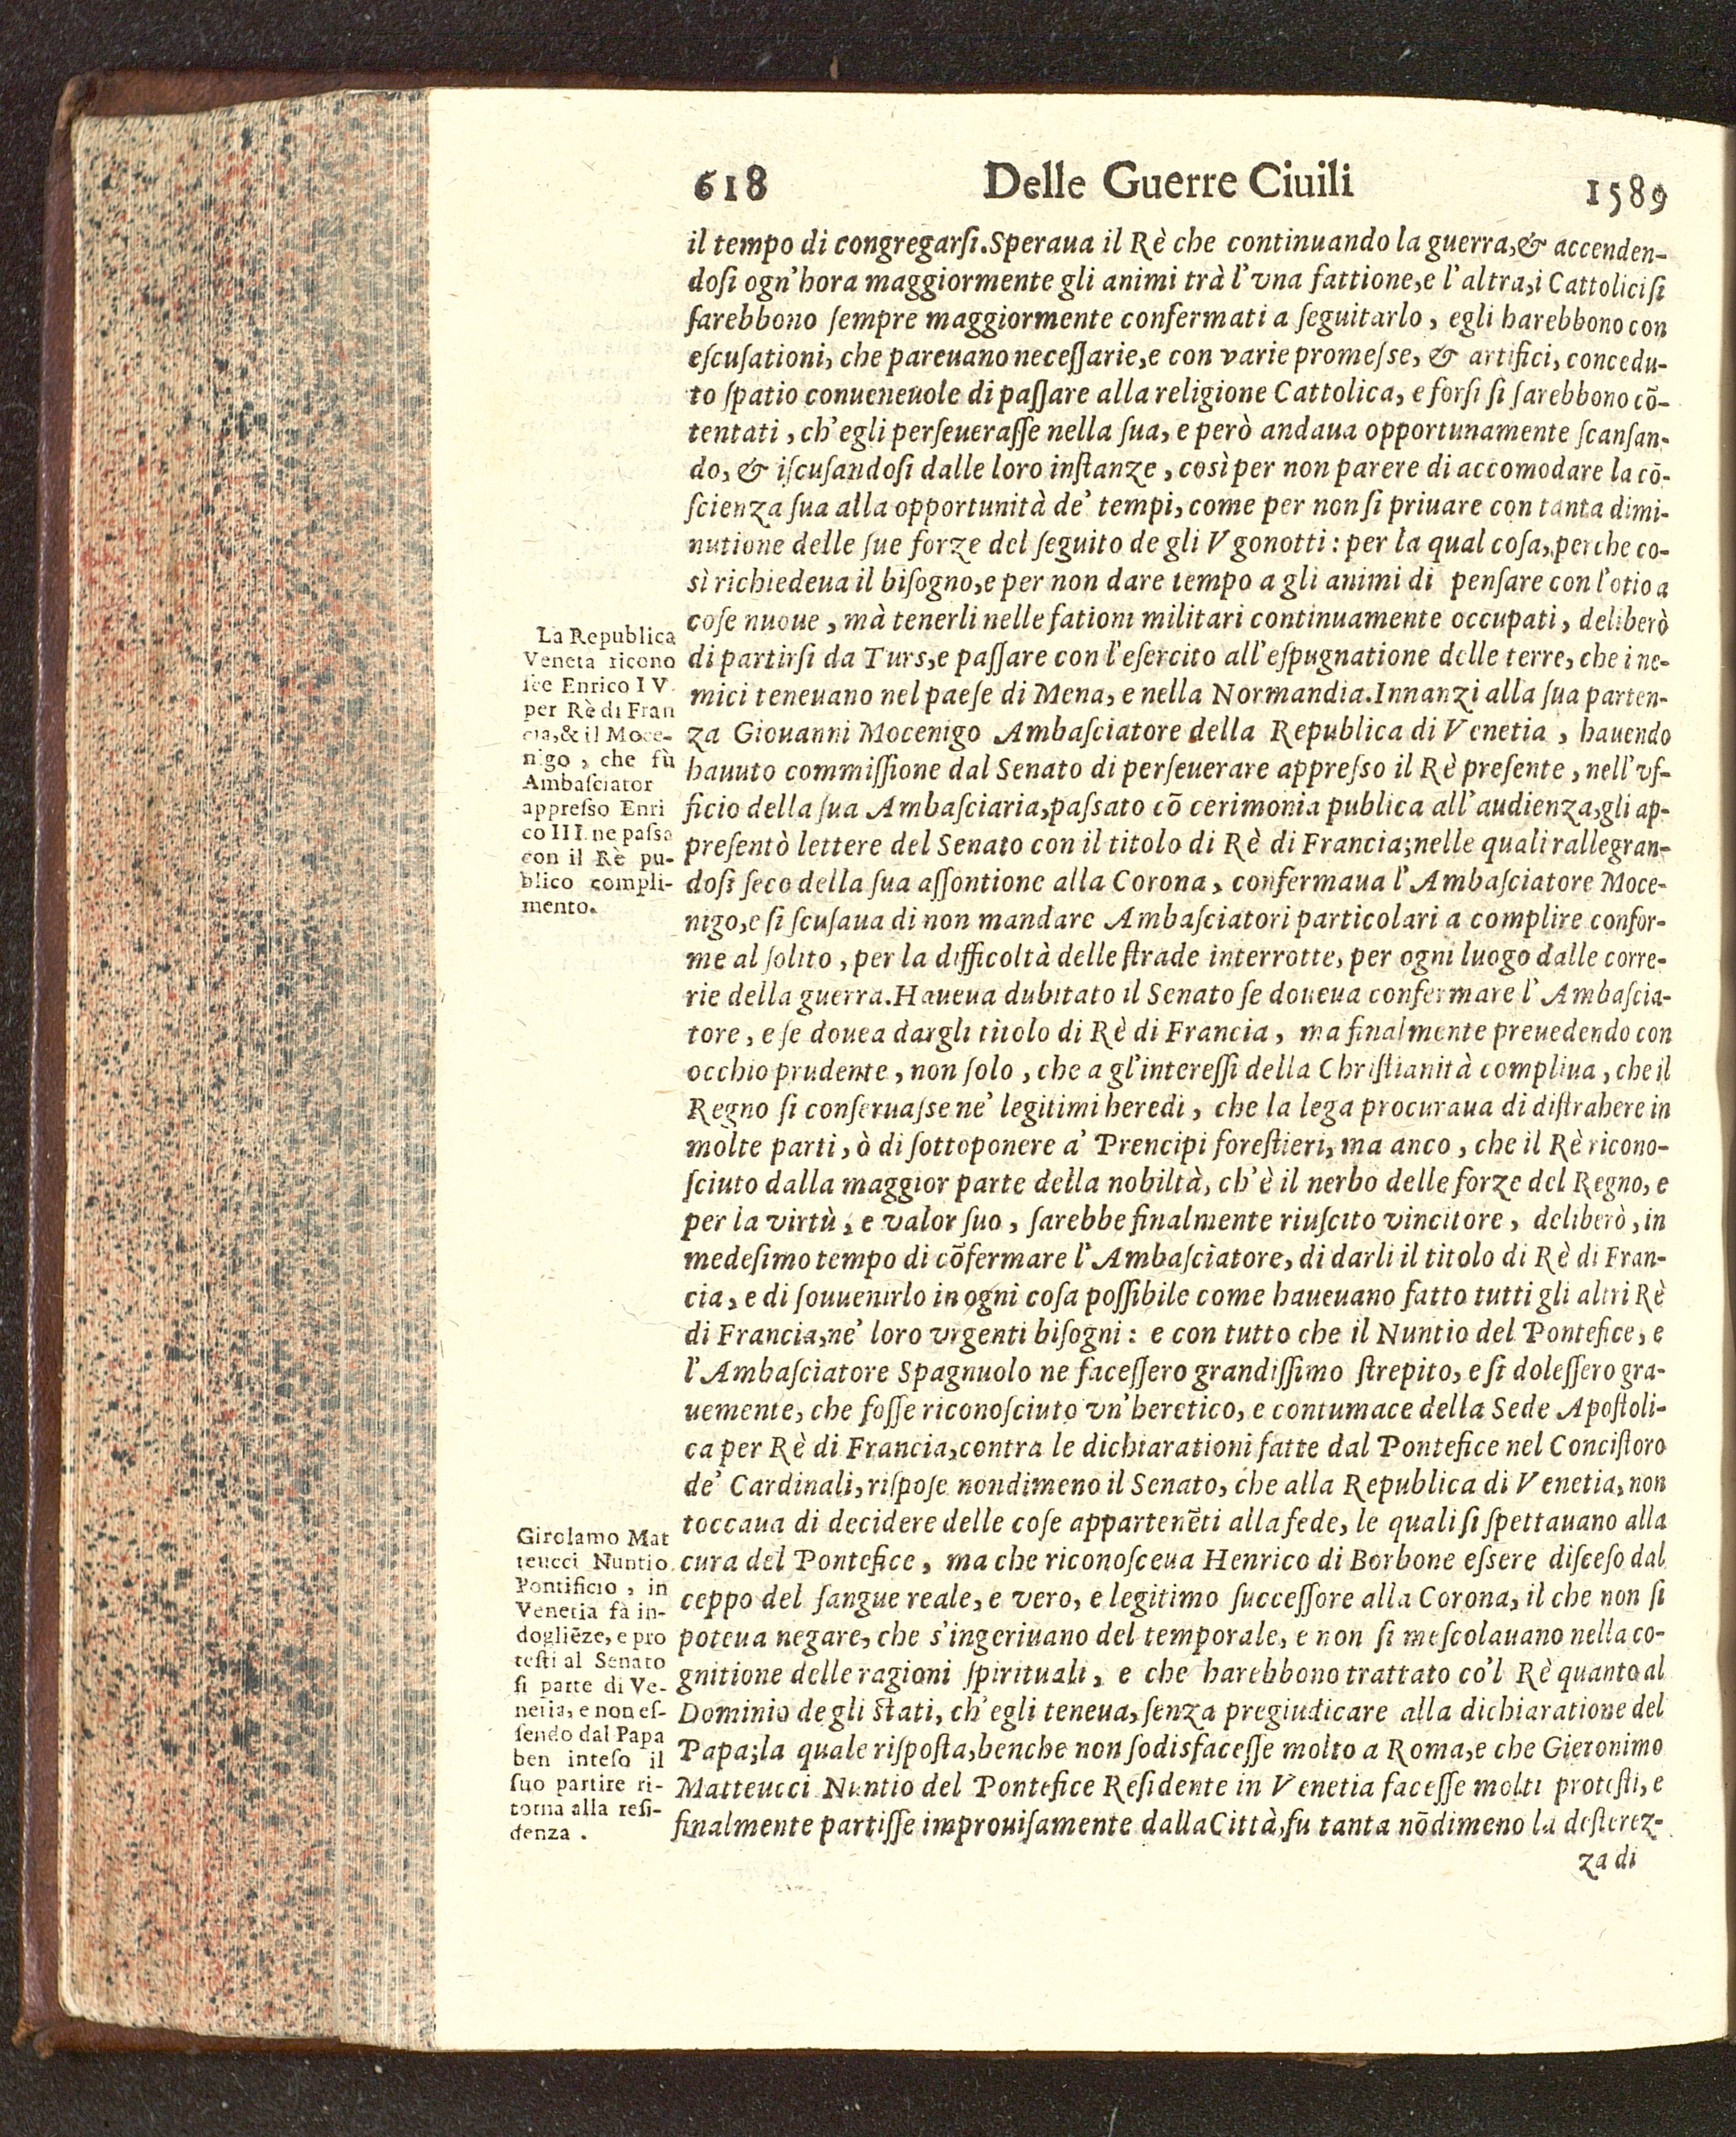 618 Delle Guerre Ciuili 1589
il tempo di congregarſi.Speraua il Rè che continuando la guerra,& accenden-
doſi ogn'hora maggiormente gli animi trà l'vna fattione,e l'altra,i Cattolici ſi
ſarebbono ſempre maggiormente confermati a ſeguitarlo, egli harebbono con
eſcuſationi, che pareuano neceſſarie,e con varie promeſse, & artifici, concedu-
to ſpatio conueneuole di paſſare alla religione Cattolica, e forſi ſi ſarebbono cõ-
tentati, ch'egli perſeueraſſe nella ſua, e però andaua opportunamente ſcanſan-
do, & iſcuſandoſi dalle loro inſtanze, così per non parere di accomodare la cõ-
ſcienza ſua alla opportunità de' tempi, come per non ſi priuare con tanta dimi-
nutione delle ſue forze del ſeguito de gli Vgonotti: per la qual coſa, perche co-
sì richiedeua il biſogno,e per non dare tempo a gli animi di penſare con l'otio a
coſe nuoue, mà tenerli nelle fationi militari continuamente occupati, deliberò
di partirſi da Turs,e paſſare con l'eſercito all'eſpugnatione delle terre, che i ne-
mici teneuano nel paeſe di Mena, e nella Normandia.Innanzi alla ſua parten-
za Giouanni Mocenigo Ambaſciatore della Republica di Venetia, hauendo
hauuto commiſſione dal Senato di perſeuerare appreſso il Rè preſente, nell'vf-
ficio della ſua Ambaſciaria,paſsato cõ cerimonia publica all'audienza,gli ap-
preſentò lettere del Senato con il titolo di Rè di Francia;nelle quali rallegran-
doſi ſeco della ſua aſſontione alla Corona, confermaua l'Ambaſciatore Moce-
nigo,e ſi ſcuſaua di non mandare Ambaſciatori particolari a complire confor-
me al ſolito, per la difficoltà delle ſtrade interrotte, per ogni luogo dalle corre-
rie della guerra.Haueua dubitato il Senato ſe doueua confermare l'Ambaſcia-
tore, e ſe douea dargli titolo di Rè di Francia, ma finalmente preuedendo con
occhio prudente, non ſolo, che a gl'intereſſi della Chriſtianità compliua, che il
Regno ſi conſeruaſse ne' legitimi heredi, che la lega procuraua di diſtrahere in
molte parti, ò di ſottoponere a' Prencipi foreſtieri, ma anco, che il Rè ricono-
ſciuto dalla maggior parte della nobiltà, ch'è il nerbo delle forze del Regno, e
per la virtù, e valor ſuo, ſarebbe finalmente riuſcito vincitore, deliberò, in
medeſimo tempo di cõfermare l'Ambaſciatore, di darli il titolo di Rè di Fran-
cia, e di ſouuenirlo in ogni coſa poſſibile come haueuano fatto tutti gli altri Rè
di Francia,ne' loro vrgenti biſogni: e con tutto che il Nuntio del Pontefice, e
l'Ambaſciatore Spagnuolo ne faceſſero grandiſſimo ſtrepito, e ſi doleſſero gra-
uemente, che foſſe riconoſciuto vn'heretico, e contumace della Sede Apoſtoli-
ca per Rè di Francia,contra le dichiarationi fatte dal Pontefice nel Conciſtoro
de' Cardinali, riſpoſe nondimeno il Senato, che alla Republica di Venetia, non
toccaua di decidere delle coſe appartenẽti alla fede, le quali ſi ſpettauano alla
cura del Pontefice, ma che riconoſceua Henrico di Borbone eſsere diſceſo dal
ceppo del ſangue reale, e vero, e legitimo ſucceſſore alla Corona, il che non ſi
poteua negare, che s'ingeriuano del temporale, e non ſi meſcolauano nella co-
gnitione delle ragioni ſpirituali, e che harebbono trattato co'l Rè quanto al
Dominio de gli Stati, ch'egli teneua, ſenza pregiudicare alla dichiaratione del
Papa;la quale riſpoſta,benche non ſodisfaceſſe molto a Roma,e che Gieronimo
Matteucci Nuntio del Pontefice Reſidente in Venetia faceſſe molti proteſti, e
finalmente partiſſe improuiſamente dalla Città,fu tanta nõdimeno la deſterez-
za di
La Republica
Veneta ricono
ſce Enrico IV.
per Rè di Fran
cia,& il Moce-
nigo, che fù
Ambaſciator
appreſso Enri
co III. ne paſsa
con il Rè pu-
blico compli-
mento.
Girolamo Mat
teucci Nuntio
Pontificio, in
Venetia fà in-
dogliẽze, e pro
teſti al Senato
ſi parte di Ve-
netia, e non eſ-
ſendo dal Papa
ben inteſo il
ſuo partire ri-
torna alla reſi-
denza.